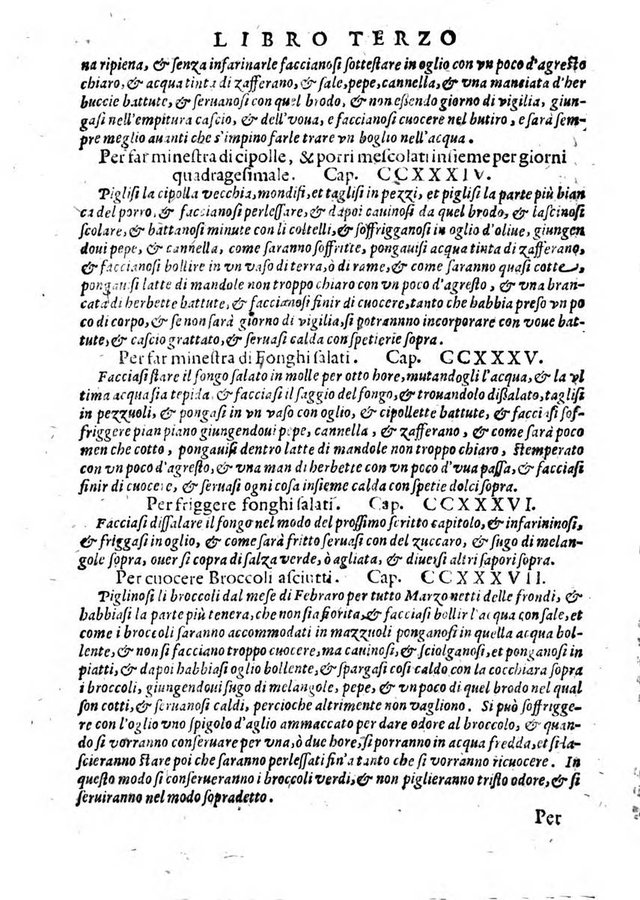 LIBRO TERZO
na ripiena, & senza infarinarle faccianosi sottestare in oglio con vn poco d'agresto
chiaro, & acqua tinta di zafferano, & sale, pepe, cannella, & vna manciata d'her
buccie battute, & seruanosi con quel brodo, & non eßendo giorno di vigilia, giun-
gasi nell'empitura cascio, & dell'voua, e faccianosi cuocere nel butiro, e sarà sem
pre meglio auanti che s'impino farle trare vn boglio nell'acqua.
Per far minestra di cipolle, & porri mescolati insieme per giorni
quadragesimale. Cap. CCXXXIV.
Piglisi la cipolla vecchia, mondisi, et taglisi in pezzi, et piglisi la parte più bian
ca del porro, & faccianosi perlessare, & dapoi cauinosi da quel brodo, & lascinosi
scolare, & battanosi minute con li coltelli, & soffrigganosi in oglio d'oliue, giungen
doui pepe, & cannella, come saranno soffritte, pongauisi acqua tinta di zafferano,
& faccianosi bollire in vn vaso di terra, ò di rame, & come saranno quasi cotte,
pongauisi latte di mandole non troppo chiaro con vn poco d'agresto, & vna bran-
cata di herbette battute, & faccianosi finir di cuocere, tanto che habbia preso vn po
co di corpo, & se non sarà giorno di vigilia, si potrannno incorporare con voue bat-
tute, & cascio grattato, & seruasi calda con spetierie sopra.
Per far minestra di Fonghi salati. Cap. CCXXXV.
Facciasi stare il fongo salato in molle per otto hore, mutandogli l'acqua, & la vl
tima acqua sia tepida, & facciasi il saggio del fongo, & trouandolo dißalato, taglisi
in pezzuoli, & pongasi in vn vaso con oglio, & cipollette battute, & facciasi sof-
friggere pian piano giungendoui pepe, cannella, & zafferano, & come sarà poco
men che cotto, pongauisi dentro latte di mandole non troppo chiaro, stemperato
con vn poco d'agresto, & vna man di herbette con vn poco d'vua passa, & facciasi
finir di cuocere, & seruasi ogni cosa insieme calda con spetie dolci sopra.
Per friggere fonghi salati. Cap. CCXXXVI.
Facciasi dissalare il fongo nel modo del prossimo scritto capitolo, & infarininosi,
& friggasi in oglio, & come sarà fritto seruasi con del zuccaro, & sugo di melan-
gole sopra, ouer si copra di salza verde, ò agliata, & diuersi altri sapori sopra.
Per cuocere Broccoli asciutti. Cap. CCXXXVII.
Piglinosi li broccoli dal mese di Febraro per tutto Marzo netti delle frondi, &
habbiasi la parte più tenera, che non sia fiorita, & facciasi bollir l'acqua con sale, et
come i broccoli saranno accommodati in mazzuoli ponganosi in quella acqua bol-
lente, & non si facciano troppo cuocere, ma cauinosi, & sciolganosi, et ponganosi in
piatti, & dapoi habbiasi oglio bollente, & spargasi cosi caldo con la cocchiara sopra
i broccoli, giungendoui sugo di melangole, pepe, & vn poco di quel brodo nel qual
son cotti, & seruanosi caldi, percioche altrimente non vagliono. Si può soffrigge-
re con l'oglio vno spigolo d'aglio ammaccato per dare odore al broccolo, & quan-
do si vorranno conseruare per vna, ò due hore, si porranno in acqua fredda, et si la-
scieranno stare poi che saranno perlessati fin'a tanto che si vorranno ricuocere. In
questo modo si conserueranno i broccoli verdi, & non piglieranno tristo odore, & si
seruiranno nel modo sopradetto.
Per